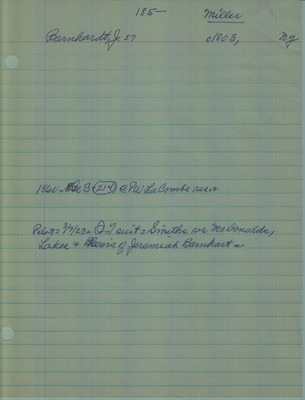 185- Miller
Barnhardt, J. 57 c1803, NY
1860 Bk 3 (214) @ PW LaCombe res
3/7/23 Q T suit Smiths vs McDonalds,
Lakes & Heirs of Jeremiah Bernhart